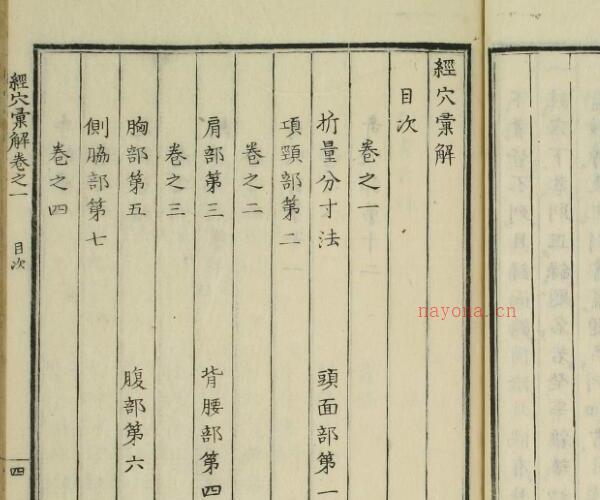 經穴彙解
目次
卷之一
折量分寸法 頭面部第一
項頸部第二
卷之二
肩部第三 背腰部第四
卷之三
胸部第五 腹部第六
側脇部第七
卷之四
經穴彙解卷之一 目次 四
nayona.cn